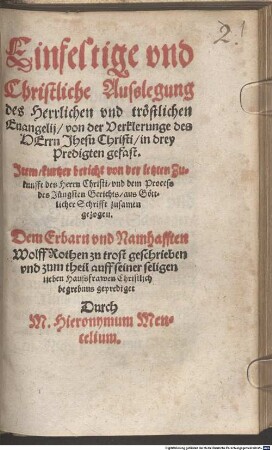 2.
Einfeltige vnd
Christliche Ausslegung
des Herrlichen vnd tröstlichen
Euangelij / von der Verklerunge des
HErrn Jhesu Christi / in drey
Predigten gefast.
Item / kurtzer bericht von der letzten Zu-
kunfft des Herrn Christi / vnd dem Process
des Jüngsten Gerichts / aus Gött-
licher Schrifft zusamen
gezogen.
Dem Erbarn vnd Namhafften
Wolff Rothen zu trost geschrieben
vnd zum theil auff seiner seligen
lieben Hausfrawen Christlich
begrebnus geprediget
Durch
M. Hieronymum Men-
celium.